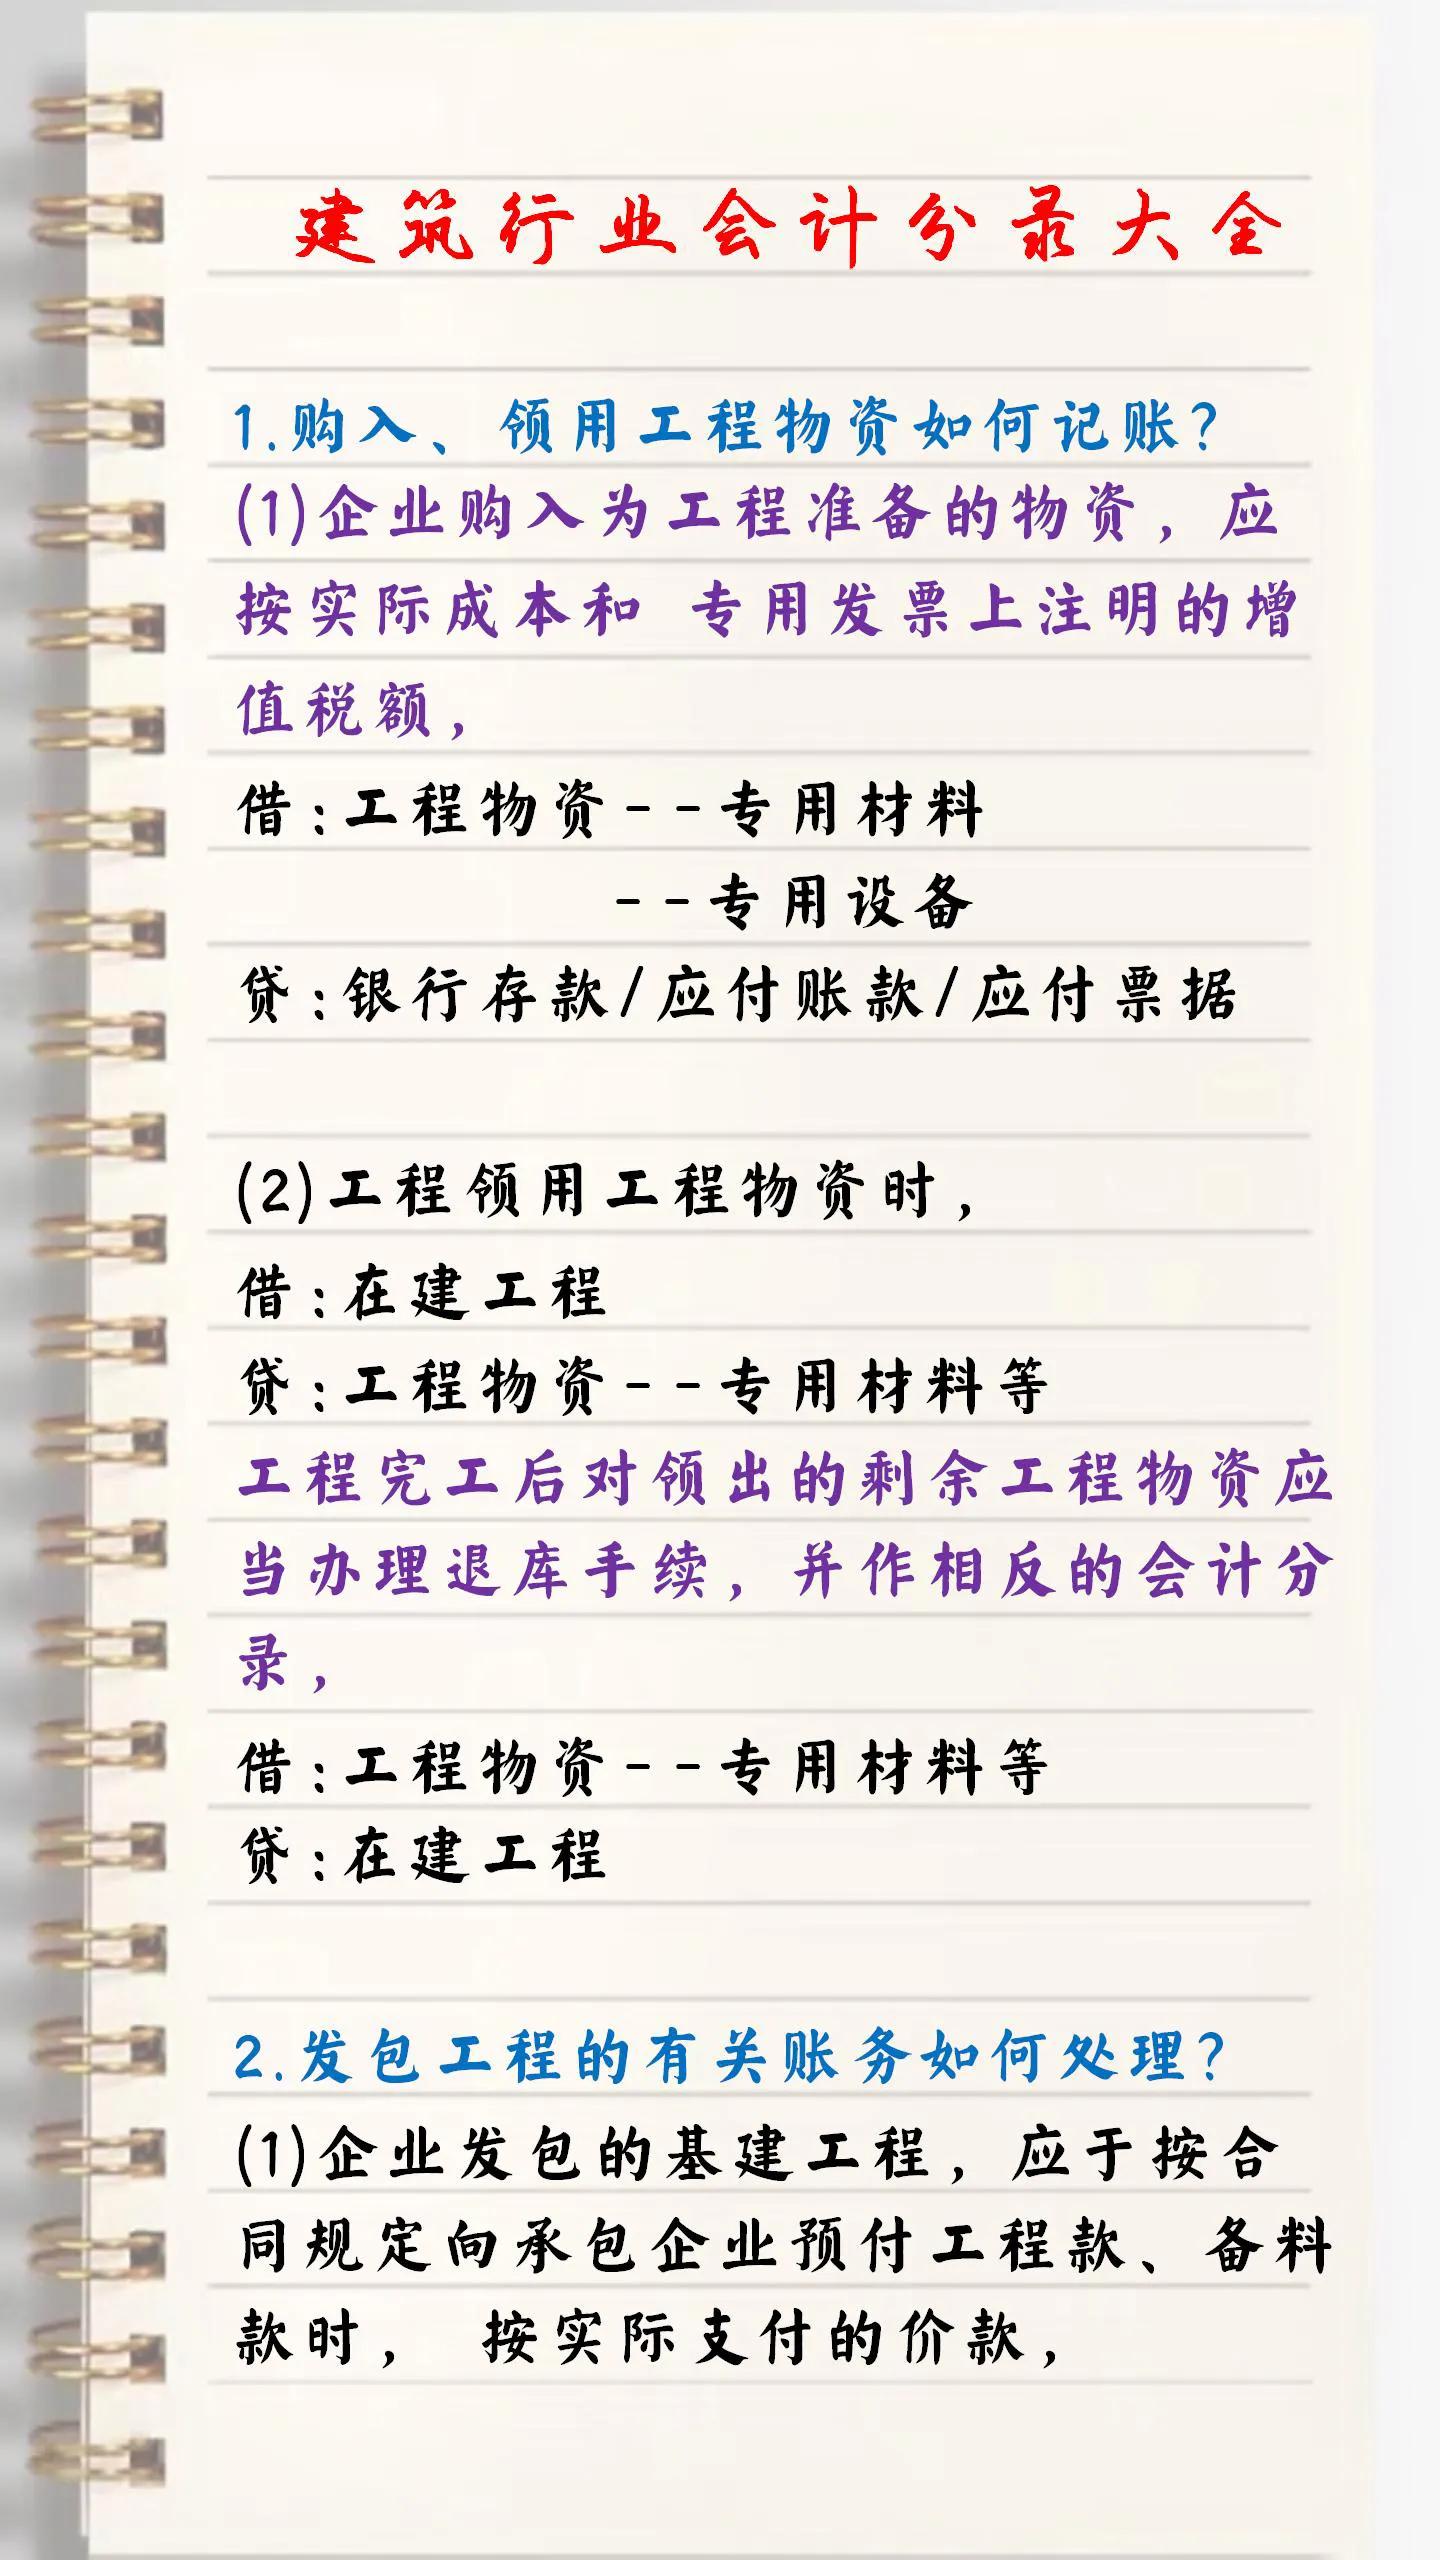 建筑行业会计分录大全
1.购入、领用工程物资如何记账?
(1)企业购入为工程准备的物资，应
按实际成本和 专用发票上注明的增
值税额，
借:工程物资--专用材料
--专用设备
贷:银行存款/应付账款/应付票据
(2)工程领用工程物资时，
借:在建工程
贷:工程物资--专用材料等
工程完工后对领出的剩余工程物资应
当办理退库手续，并作相反的会计分
录，
借:工程物资--专用材料等
贷:在建工程
2.发包工程的有关账务如何处理?
(1)企业发包的基建工程，应于按合
同规定向承包企业预付工程款、备料
款时， 按实际支付的价款，